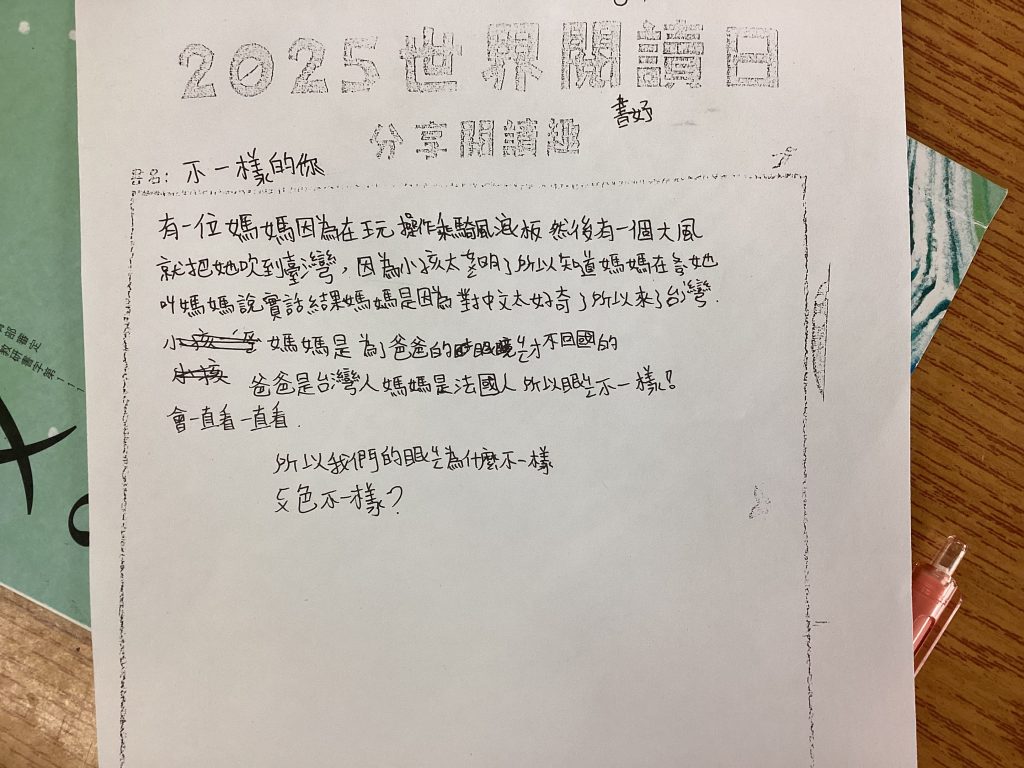 2025世界閱讀日
書妤
分享閱讀趣
書名: 不一樣的你
有一位媽媽因為在玩操作乘騎風浪板 然後有一個大風
就把她吹到臺灣，因為小孩太聰明了所以知道媽媽在ㄍ她
叫媽媽說實話結果媽媽是因為對中文太好奇了所以來了台灣.
媽媽是為了爸爸的 才不回國的
爸爸是台灣人媽媽是法國人所以眼ㄓ不一樣?
會一直看一直看.
所以我們的眼ㄓ為什麼不一樣
ㄆ色不一樣?
部審定
教研書字第